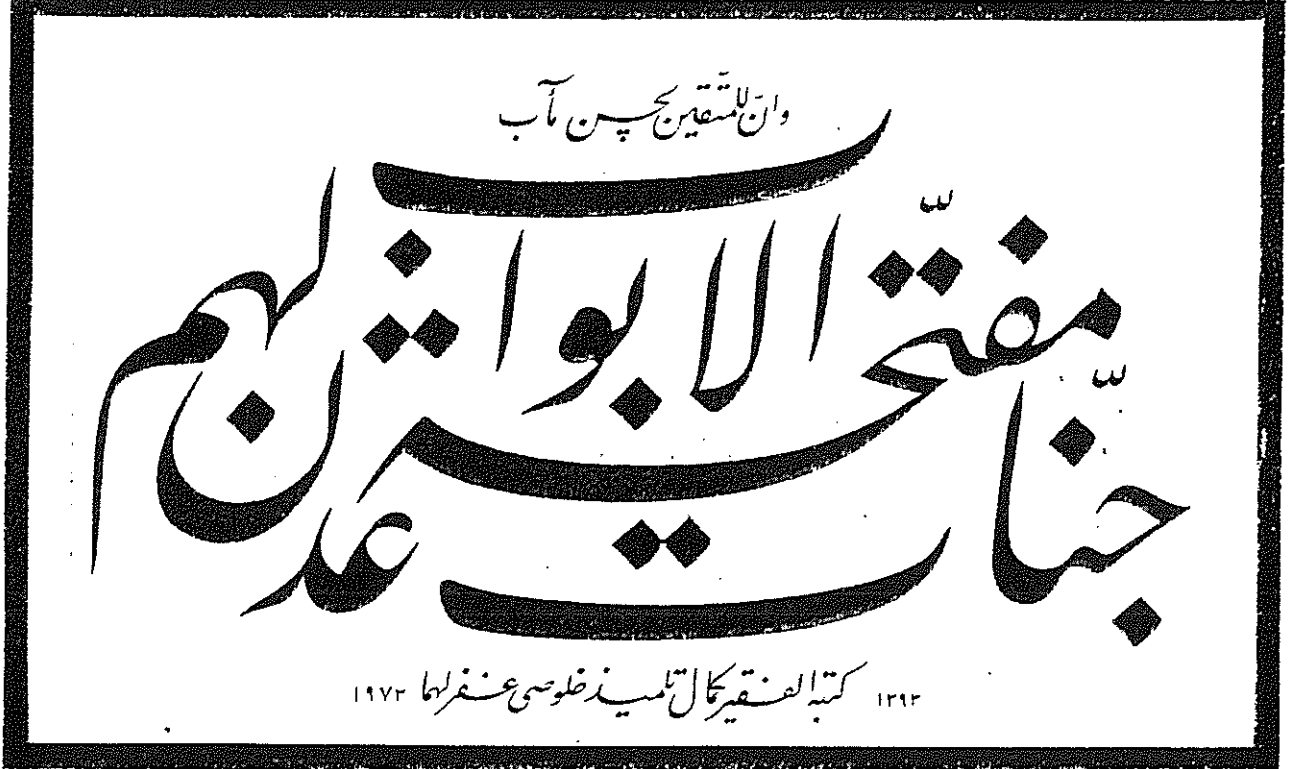 وانّ للمتّقين لحسن مآب
جنّات عدن مفتّحة لهم الابواب
١٣٩٣ كتبه الفقير كمال تلميذ خلوصى غفر لهما ١٩٧٣